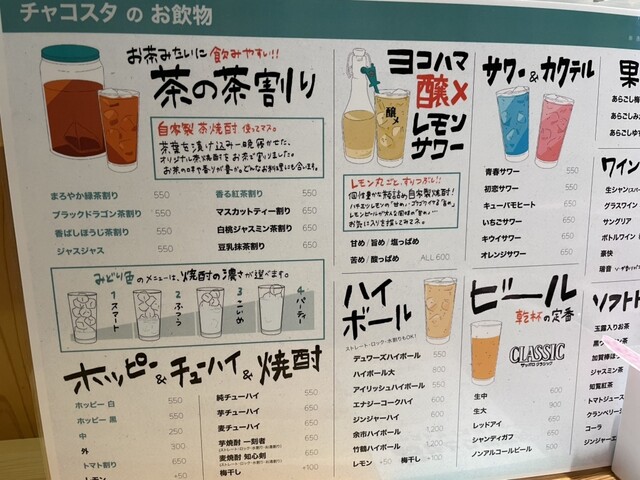 チャコスタ の お飲物
お茶みたいに飲みやすい!!
茶の茶割り
自家製 茶焼酎 使ってマス。
茶葉を漬け込み一晩寝かせた、
オリジナル茶焼酎を お茶で割りました。
まろやか緑茶割り 550
ブラックドラゴン茶割り 550
香ばしほうじ茶割り 550
ジャスジャス 550
香る紅茶割り 550
マスカットティー割り 650
白桃ジャスミン茶割り 650
豆乳抹茶割り 650
みどり色のメニューは、焼酎の濃さが選べます。
1 スマート
2 ふつう
3 こいめ
4 パーティー
ホッピー&チューハイ&焼酎
ホッピー 白 550
ホッピー 黒 550
中 250
外 300
トマト割り 650
レモン +50
純チューハイ 550
芋チューハイ 650
麦チューハイ 650
芋焼酎 一刻者 650
(ストレート・ロック・水割り・お湯割り)
麦焼酎 知心剣 650
(ストレート・ロック・水割り・お湯割り)
梅干し +100
ヨコハマ
醸〆
レモン
サワー
醸〆
レモン丸ごと、すりつぶし!!
甘め / 旨め / 塩っぱめ
苦め / 酸っぱめ ALL 600
ハイ
ボール
ストレート・ロック・水割りもOK!
デュワーズハイボール 550
ハイボール大 800
アイリッシュハイボール 550
エナジーコークハイ 600
ジンジャーハイ 600
余市ハイボール 1,200
竹鶴ハイボール 1,200
レモン +50 梅干し +100
サワー&カクテル
青春サワー 550
初恋サワー 550
キューバモヒート 650
いちごサワー 650
キウイサワー 650
オレンジサワー 650
ビール
乾杯の定番
CLASSIC
サッポロ クラシック
生中 600
生大 900
レッドアイ 650
シャンディガフ 650
ノンアルコールビール 500
果
あらごし
あらごしみ
あらごしゆ
ワイン
生シャン(スパ
グラスワイン
サングリア
ボトルワイン
豪快
瑞音
ソフト
玉露入りお茶
加賀棒ほ
知覧紅茶
トマトジュース
クランベリー
コーラ
ジンジャーエ